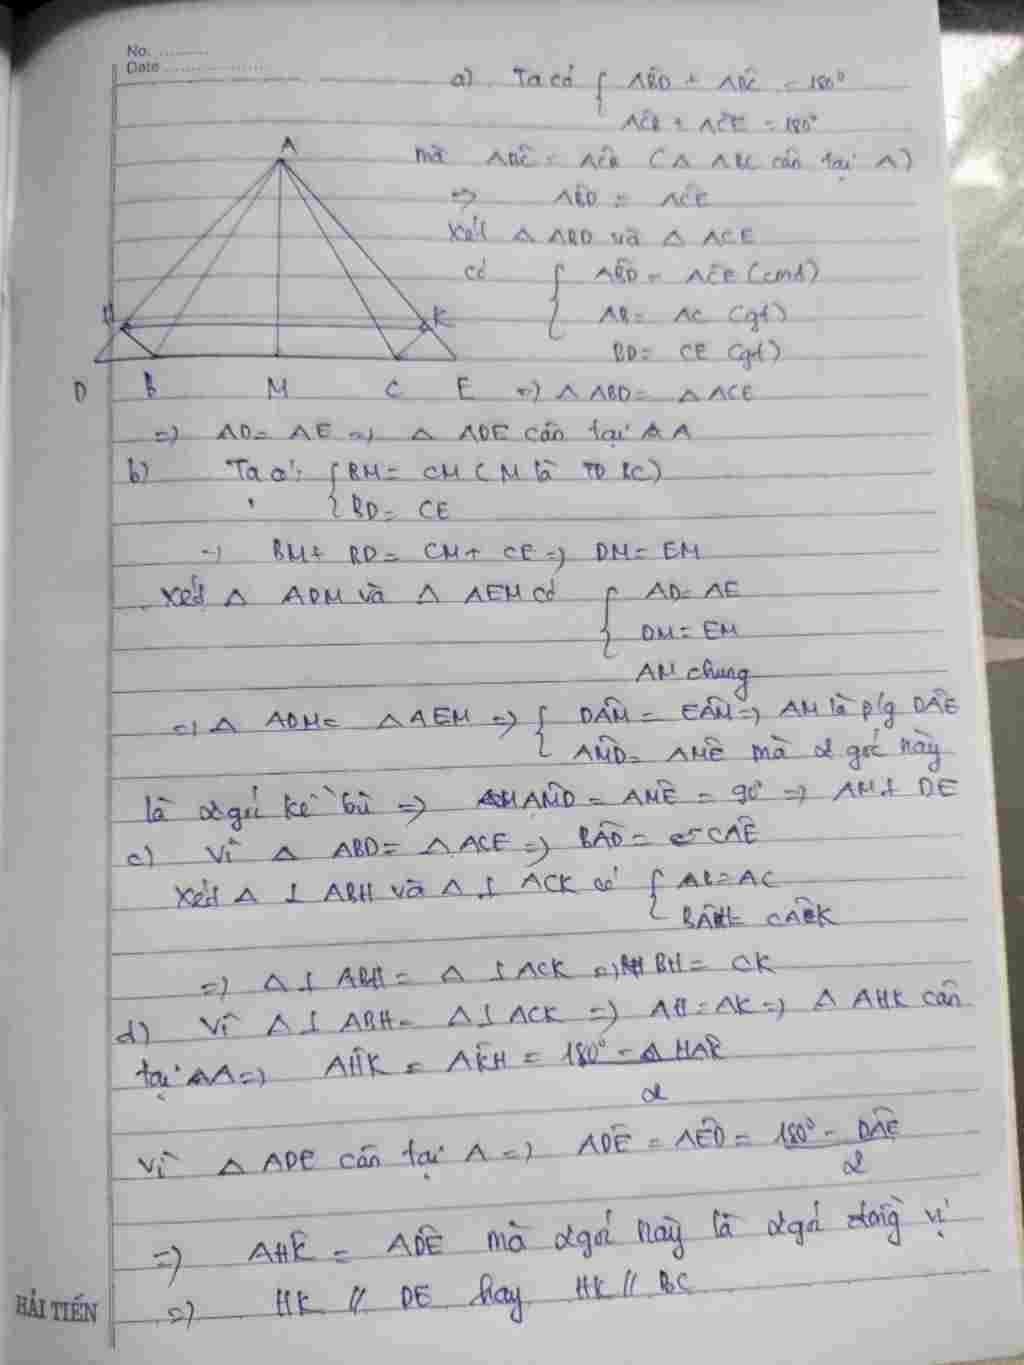 No. ..........
Date ....................
a) Ta có { ABD̂ + ABĈ = 180°
ACB̂ + ACÊ = 180°
mà ABĈ = ACB̂ (Δ ABC cân tại A)
=> ABD̂ = ACÊ
Xét Δ ABD và Δ ACE
có { ABD̂ = ACÊ (cmt)
AB = AC (gt)
BD = CE (gt)
A
H
K
D B M C E => Δ ABD = Δ ACE
=> AD = AE => Δ ADE cân tại A
b) Ta có: { BM = CM (M là TĐ BC)
BD = CE
=> BM + BD = CM + CE => DM = EM
Xét Δ ADM và Δ AEM có { AD = AE
DM = EM
AM chung
=> Δ ADM = Δ AEM => { DÂM = EÂM => AM là p/g DÂE
AM̂D = AM̂E mà 2 góc này
là 2 góc kề bù => AM̂D = AM̂E = 90° => AM ⊥ DE
c) Vì Δ ABD = Δ ACE => BÂD = CÂE
Xét Δ ⊥ ABH và Δ ⊥ ACK có { AB = AC
BÂH = CÂK
=> Δ ⊥ ABH = Δ ⊥ ACK => BH = CK
d) Vì Δ ⊥ ABH = Δ ⊥ ACK => AH = AK => Δ AHK cân
tại A => AĤK = AK̂H = 180° - HAK / 2
Vì Δ ADE cân tại A => AD̂E = AÊD = 180° - DÂE / 2
=> AĤK = AD̂E mà 2 góc này là 2 góc đồng vị
=> HK // DE hay HK // BC
HẢI TIẾN